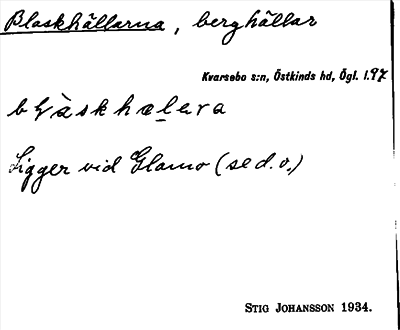 Blaskhällarna, berghällar
Kvarsebo s:n, Östkinds hd, Ögl. l. 97
Ligger vid Glamo (se d. o.)
STIG JOHANSSON 1934.